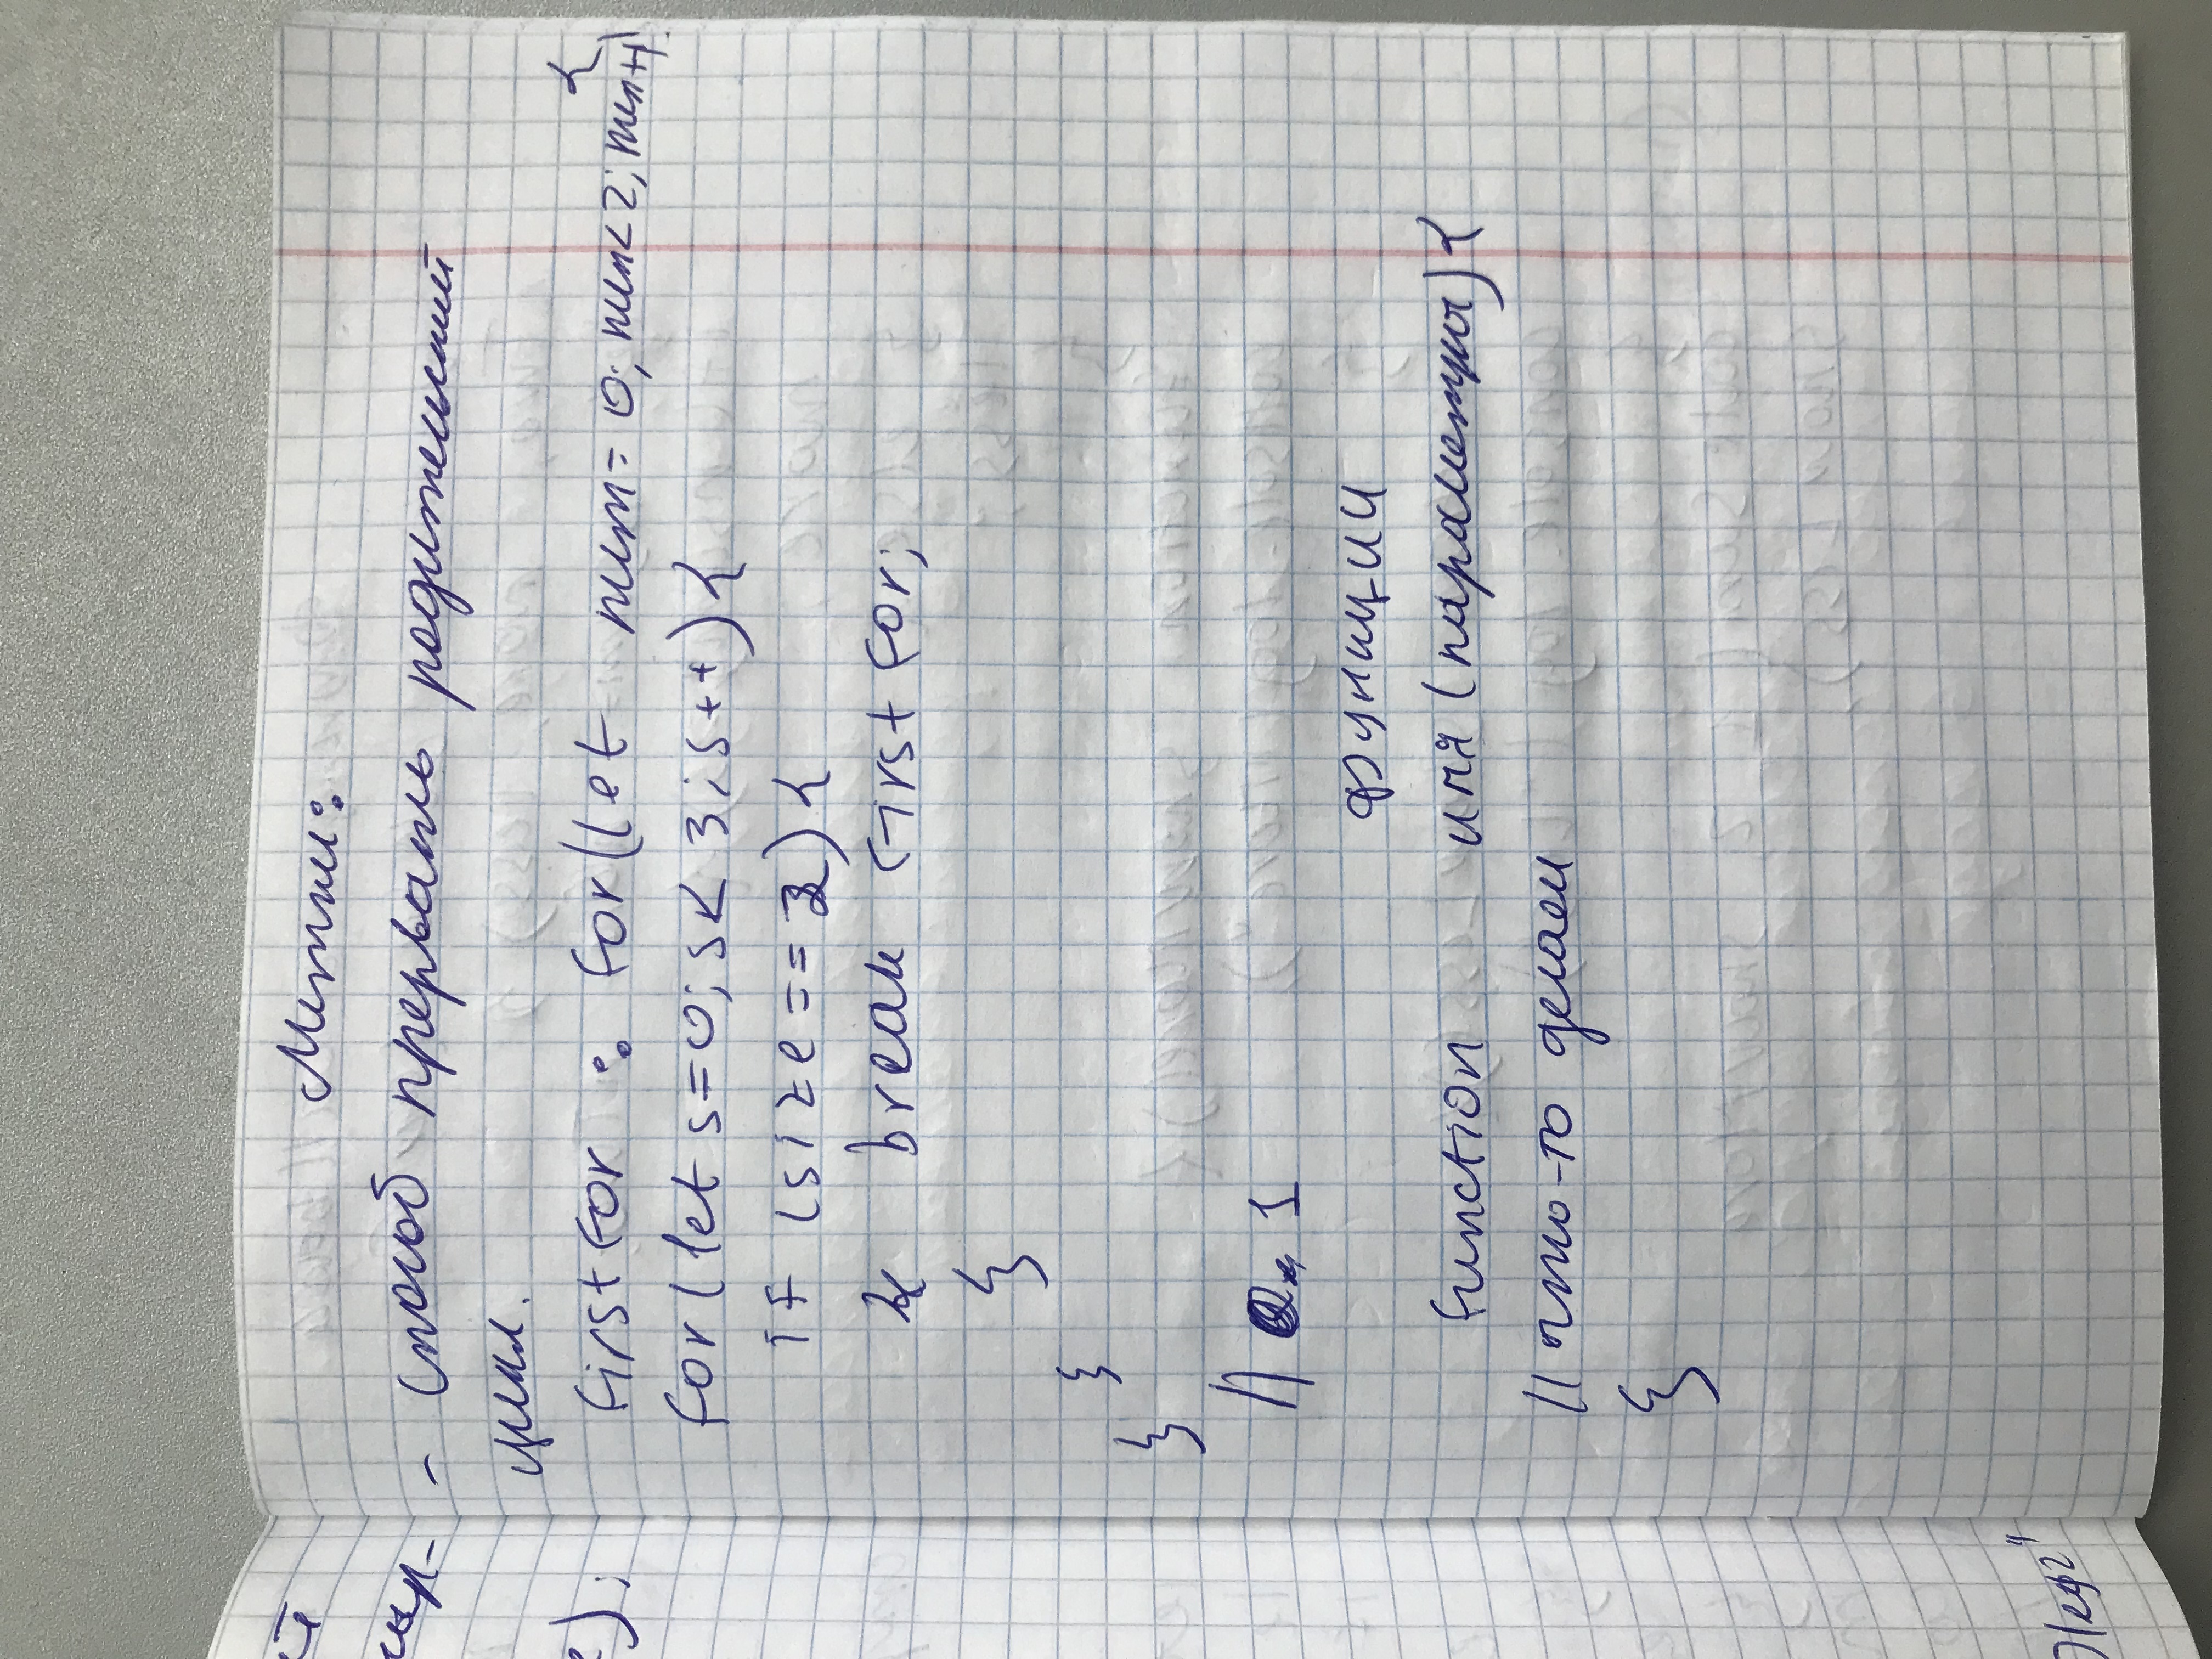 Метки:
- способ прервать родительский
цикл.
{
firstfor : for(let num=0; num<2; num++)
for(let s=0; s<3; s++){
if (size==2){
break firstfor;
}
}
}
// 0, 1
функции
function имя (параметры){
// что-то делаем
}